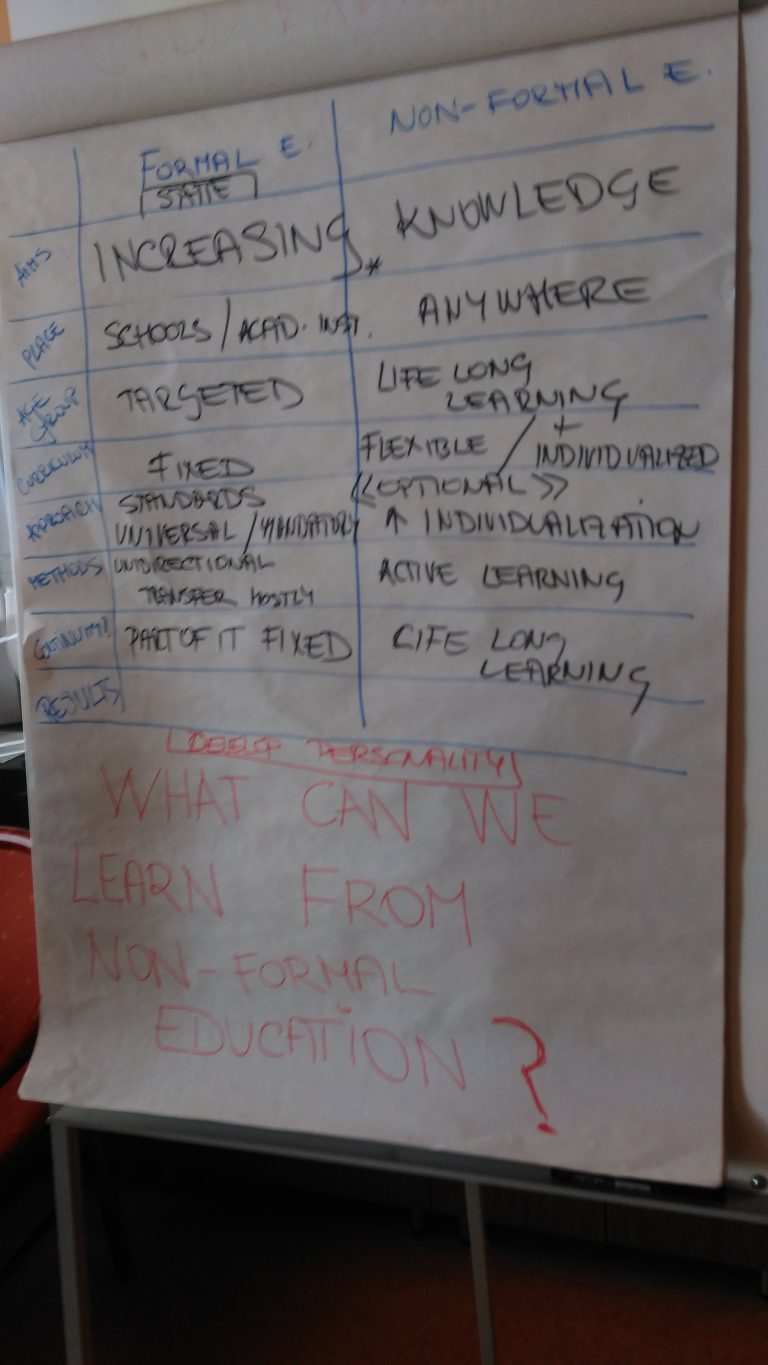 FORMAL E. NON-FORMAL E.
STATE
AIMS INCREASING * KNOWLEDGE
PLACE SCHOOLS / ACAD. INST. ANYWHERE
AGE GROUP TARGETED LIFE LONG LEARNING
CURRICULUM FIXED FLEXIBLE / + INDIVIDUALIZED
<<OPTIONAL>>
APPROACH STANDARDS
UNIVERSAL / MANDATORY ↑ INDIVIDUALIZATION
METHODS UNIDIRECTIONAL
TRANSFER MOSTLY ACTIVE LEARNING
CONTINUITY? PART OF IT FIXED LIFE LONG LEARNING
RESULTS
PERSONALITY
WHAT CAN WE
LEARN FROM
NON-FORMAL
EDUCATION ?